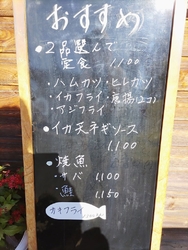 おすすめ
・2品選んで
定食 1,100
・ハムカツ・ヒレカツ
・イカフライ・唐揚(2コ)
・アジフライ
・イカ天ネギソース
1,100
・焼魚
・サバ 1,100
・鮭 1,150
カキフライ